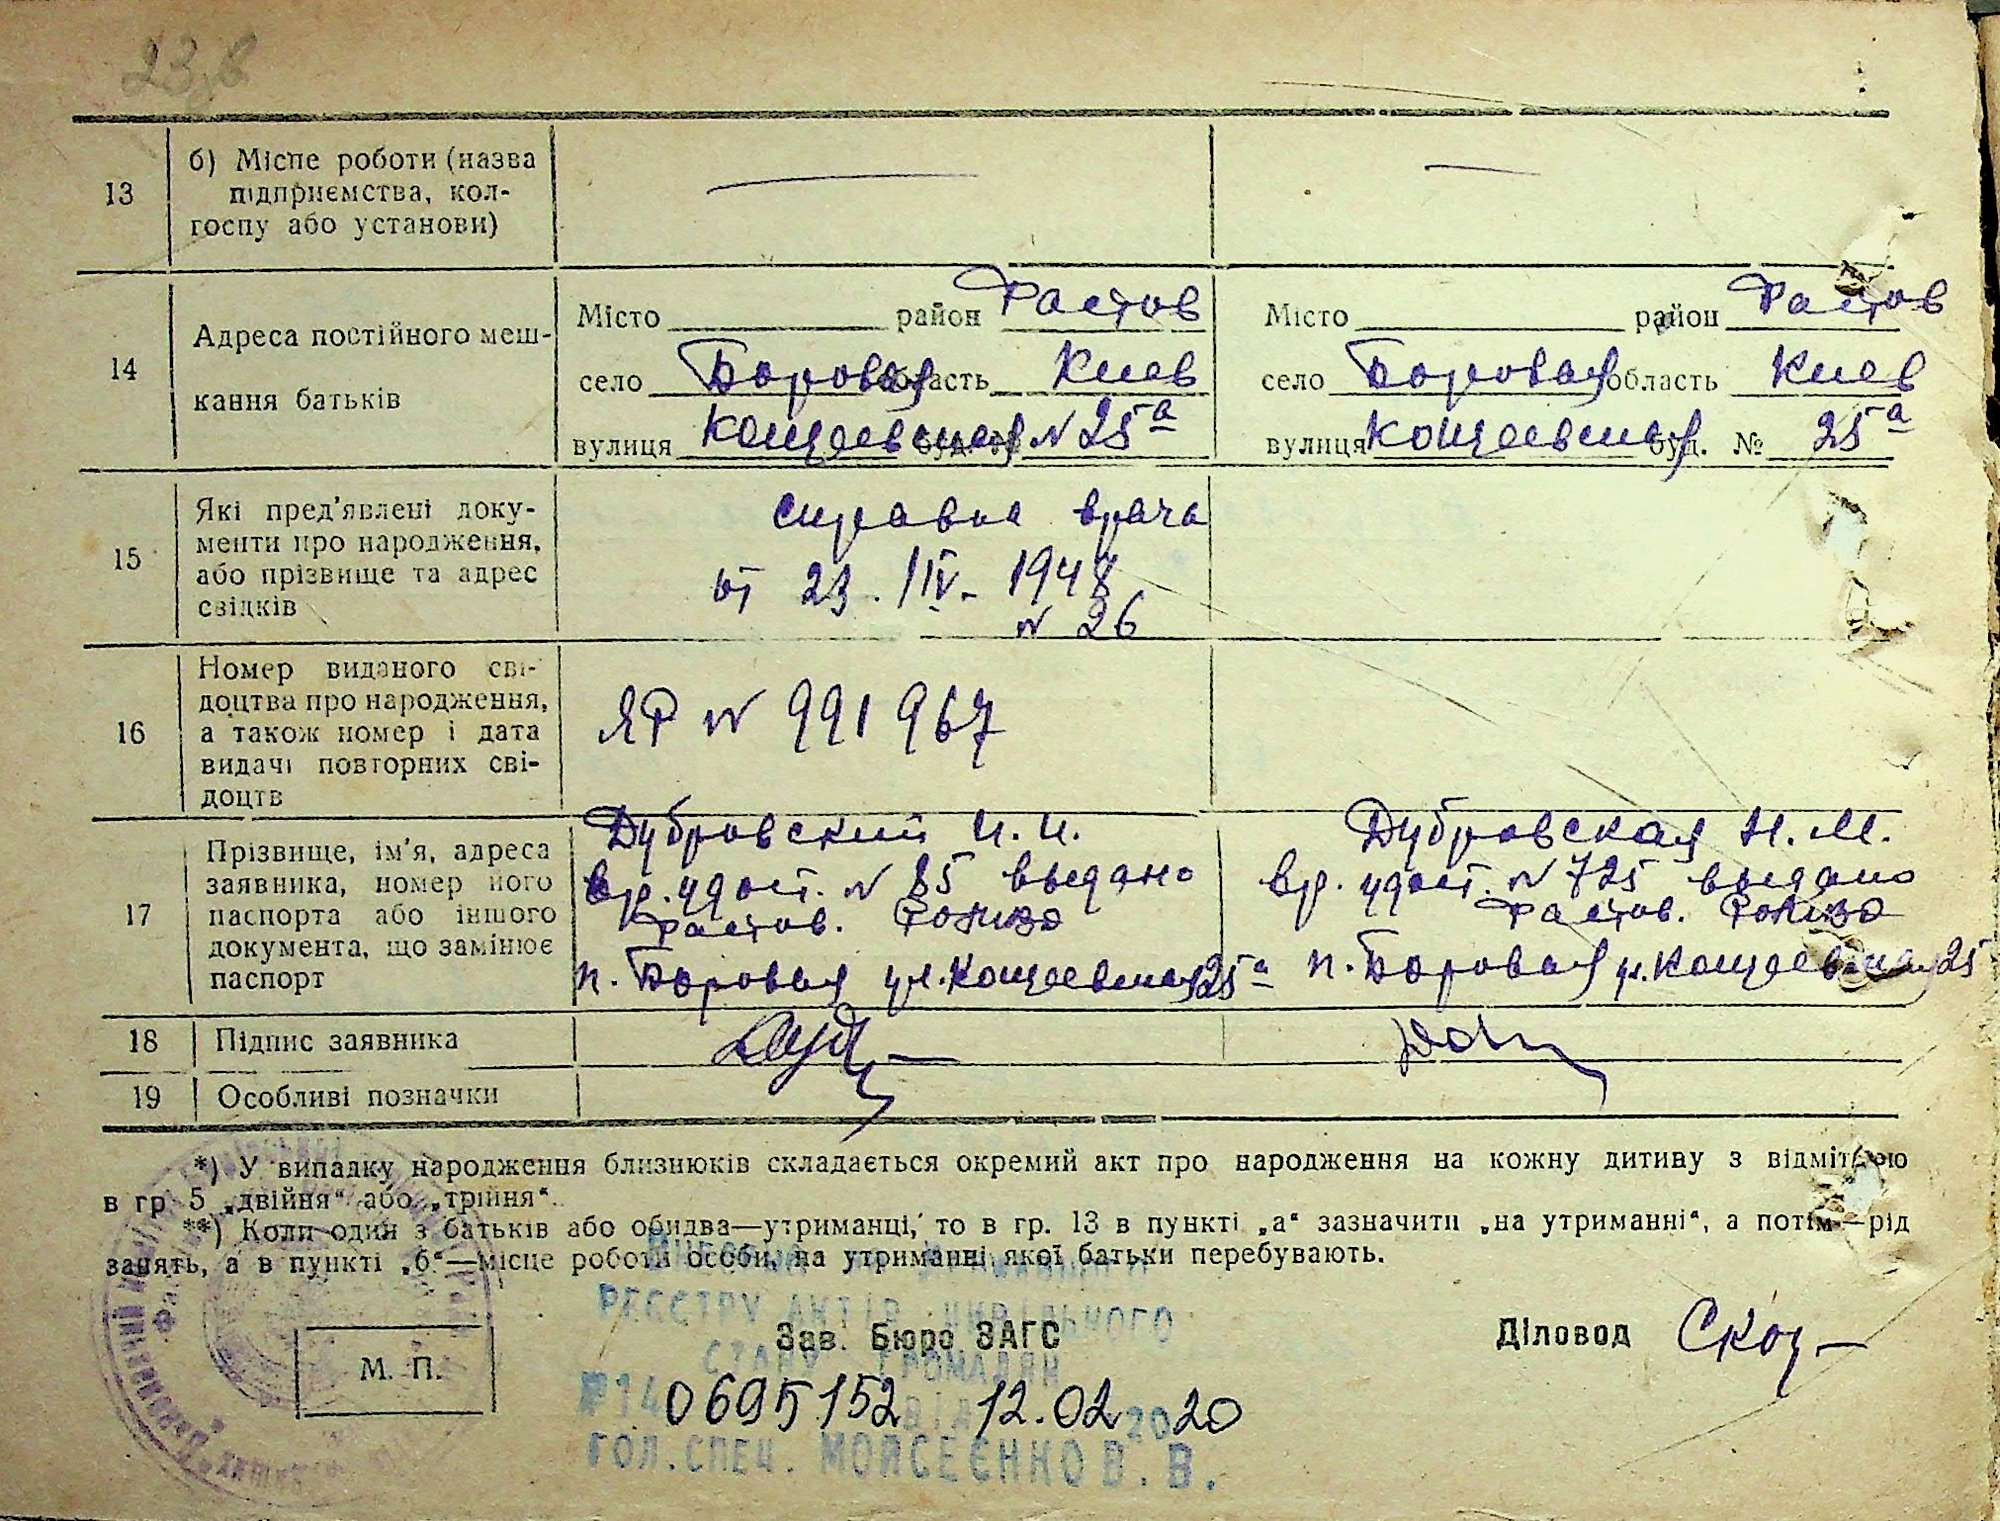 23 в
13 б) Місце роботи (назва
підприємства, кол-
госпу або установи)
14 Адреса постійного меш-
кання батьків
Місто район Фастов
село Боровая область Киев
вулиця Кощеевская буд. № N 25а
Місто район Фастов
село Боровая область Киев
вулиця Кощеевская буд. № 25а
15 Які пред'явлені доку-
менти про народження,
або прізвище та адрес
свідків
справка врача
от 23. IV. 1948
N 26
16 Номер виданого сві-
доцтва про народження,
а також номер і дата
видачі повторних сві-
доцтв
ЯР N 991967
17 Прізвище, ім'я, адреса
заявника, номер його
паспорта або іншого
документа, що замінює
паспорт
Дубровский И. И.
вр. удост. N 85 выдано
Фастов.
п. Боровая ул. Кощеевская 25а
Дубровская Н. М.
вр. удост. N 725 выдано
Фастов.
п. Боровая ул. Кощеевская 25
18 Підпис заявника
19 Особливі позначки
*) У випадку народження близнюків складається окремий акт про народження на кожну дитину з відміткою
в гр 5 „двійня“ або „трійня“.
**) Коли один з батьків або обидва—утриманці, то в гр. 13 в пункті „а“ зазначити „на утриманні“, а потім—рід
занять, а в пункті „б“—місце роботи особи, на утриманні якої батьки перебувають.
РЕЄСТРУ АКТІВ ЦИВІЛЬНОГО
Зав. Бюро ЗАГС
Діловод
СТАНУ ГРОМАДЯН
М. П.
№140695152 від 12.02 2020
ГОЛ.СПЕЦ. МОЙСЕЄНКО В. В.